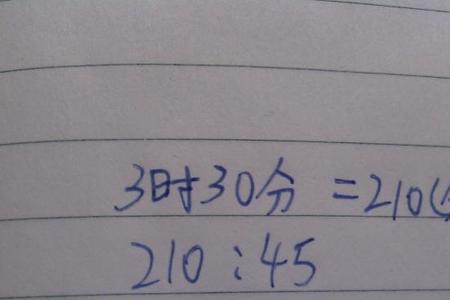 3时30分=210(
210:45